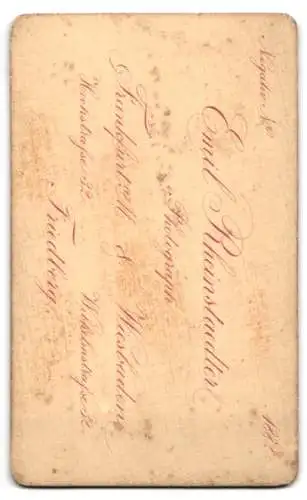 Negativ No
188
Emil Rheinstädter
Photograph
Frankfurt a/M & Wiesbaden
Hochstraße 32. Wilhelmstraße 2.
Friedberg.